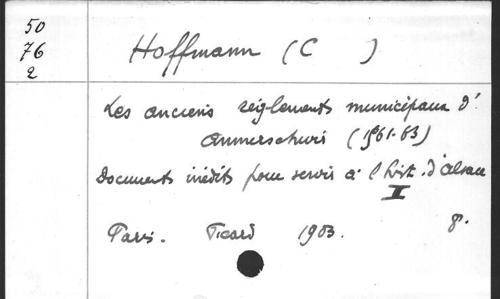 50
76
2
Hoffmann (C )
Les anciens règlements municipaux d'
Ammerschwir (1561-63)
Documents inédits pour servir à l'hist. d'Alsace
II
Paris. Picard 1903. 8°.